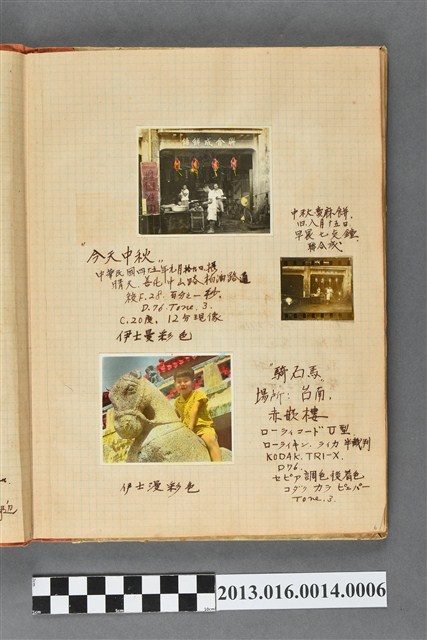 "今天中秋"
中華民國四十五年九月十九日攝
晴天、善化中山路
絞F.28. 百分之一秒.
D.76. Tone.3.
C.20度. 12分現像
伊士曼彩色
中秋賣麻餅.
旧.八月十五日.
早晨七交鐘.
聯合成
"騎石馬"
場所: 台南.
赤嵌樓
ローライコード 型.
ローライキン. ライカ半裁判
KODAK. TRI-X.
D76.
セピア調色後着色
コダック カラ ペーパー
Tone.3.
伊士漫彩色
2013.016.0014.0006